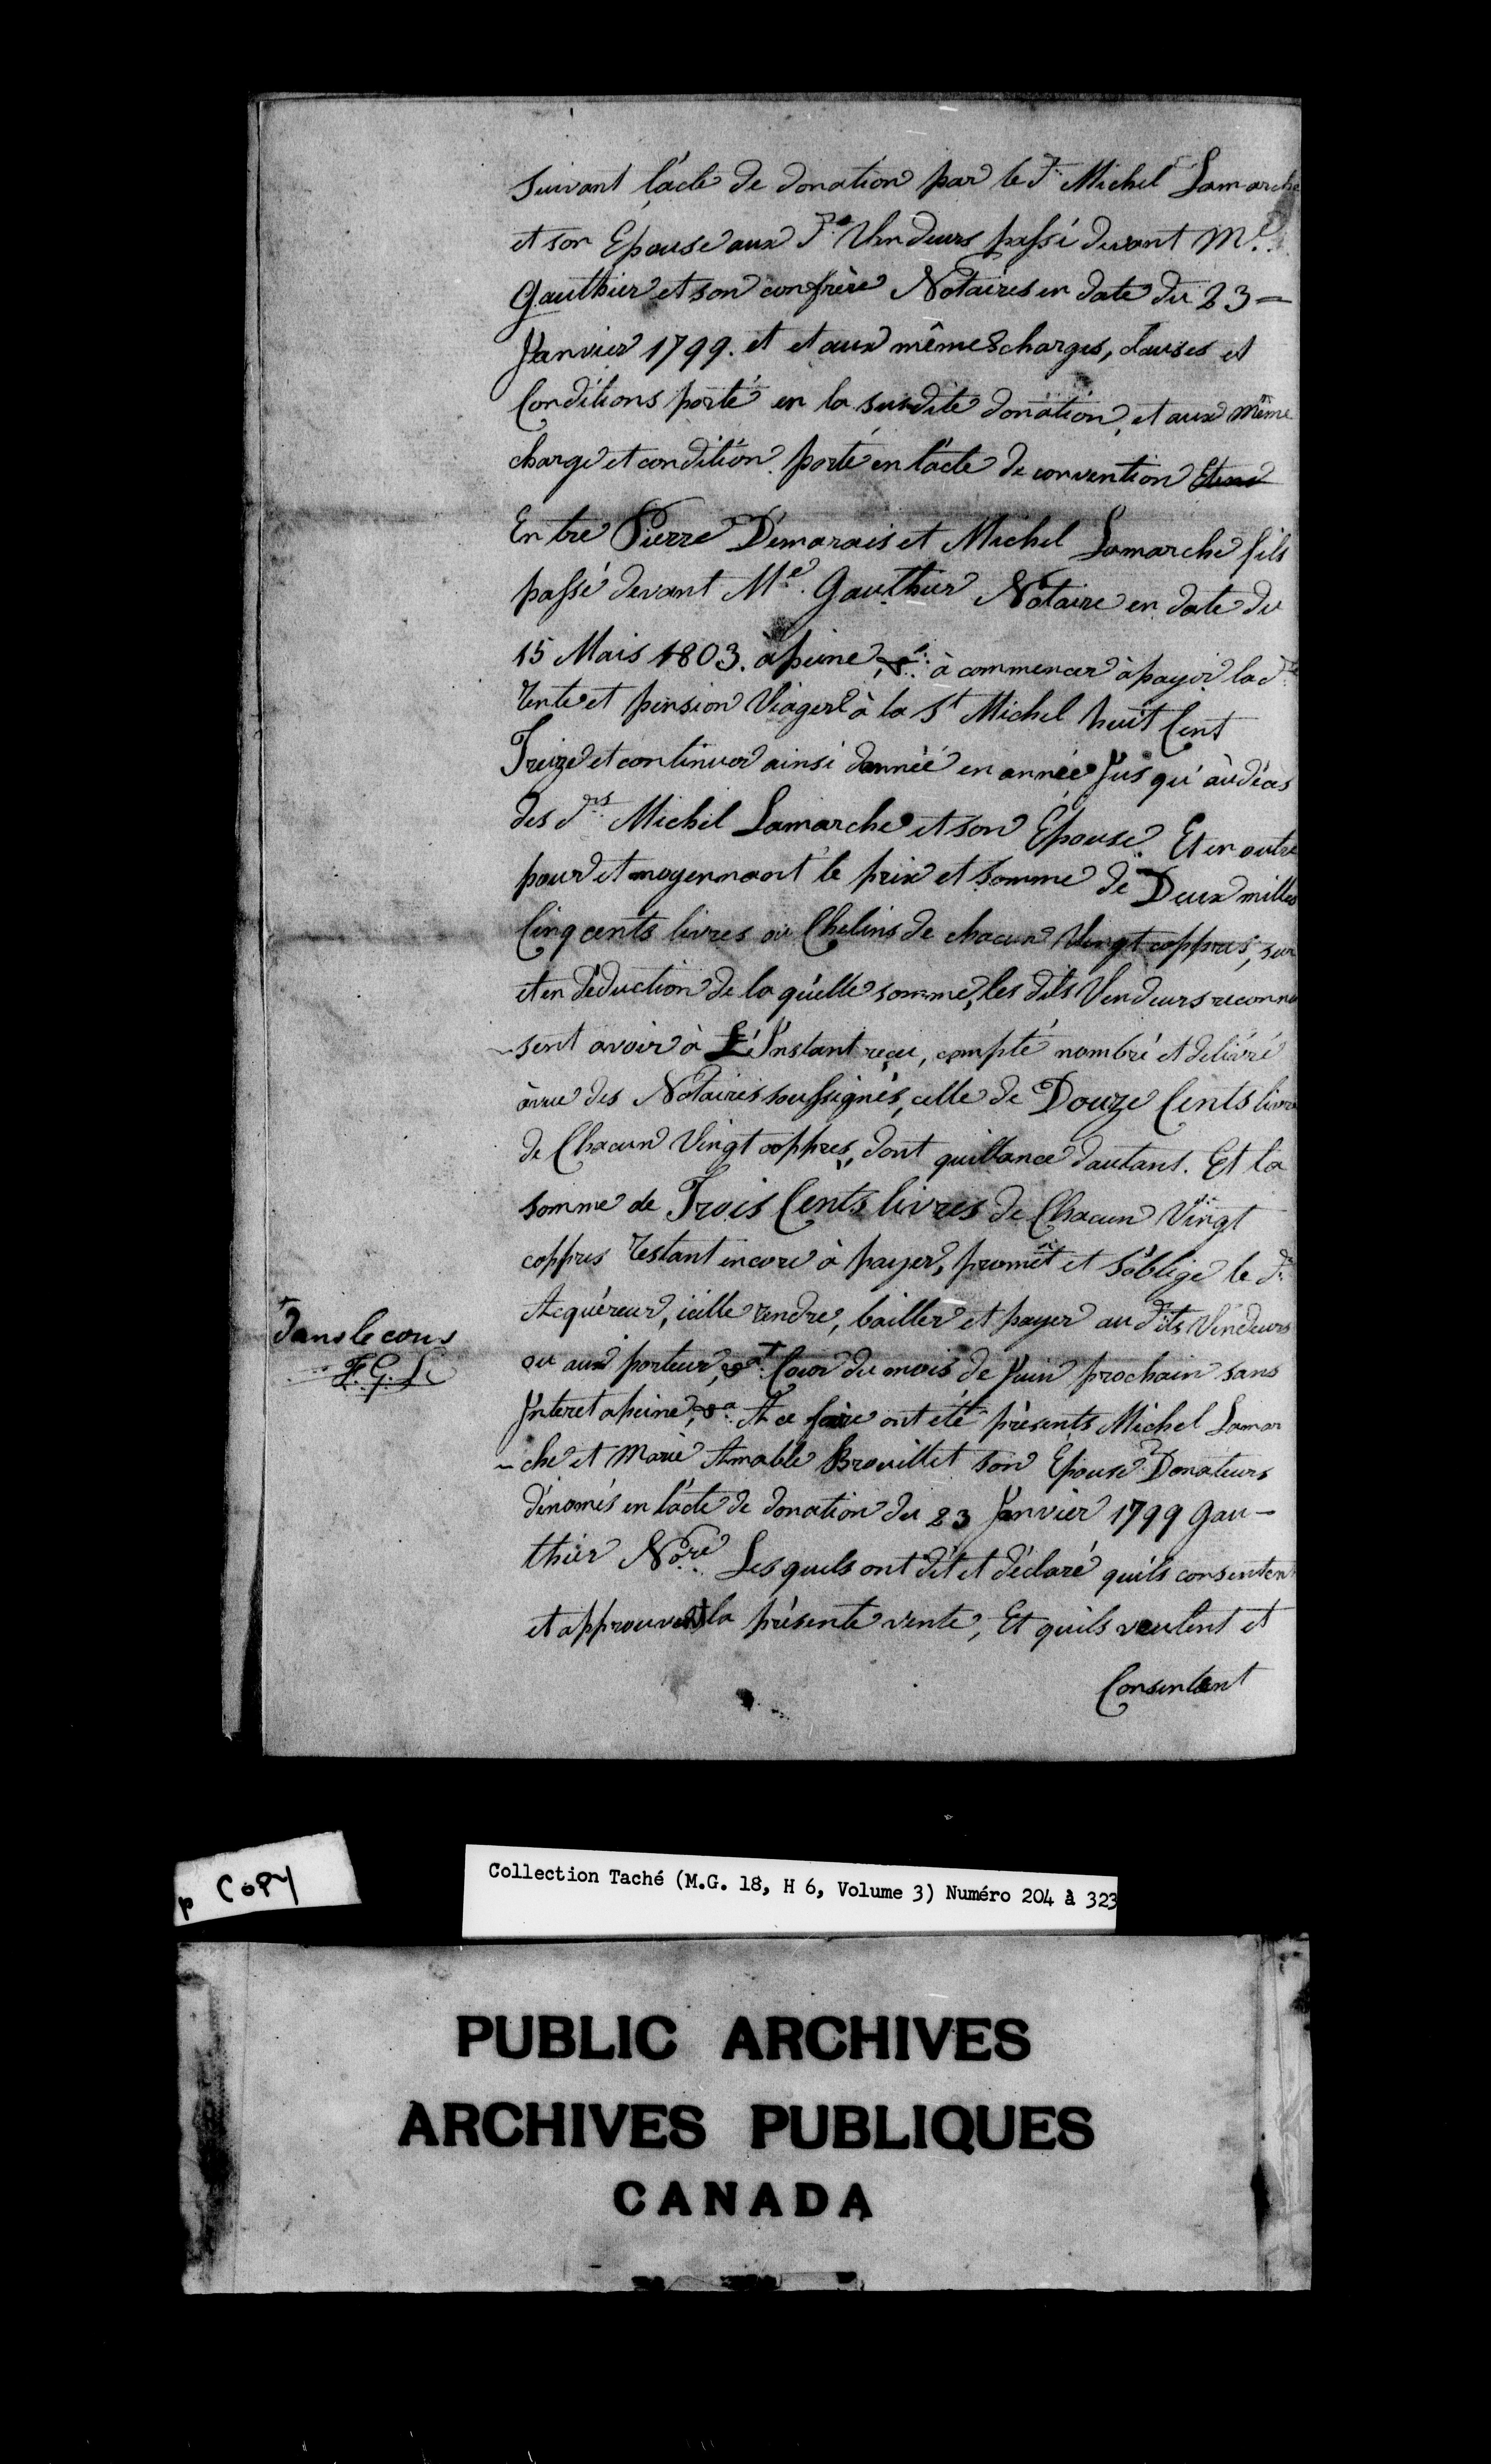 suivant l'acte de donation par le dt. Michel Lamarche
et son Epouse aux dts Vendeurs passé devant Me.
Gauthier et son confrère Notaires en date du 23 =
Janvier 1799. et et aux mêmes charges, clauses et
Conditions porté en la susdite donation, et aux même
charge et condition porté en l'acte de convention
Entre Pierre Démarais et Michel Lamarche fils
passé devant Me. Gauthier Notaire en date du
15 Mais 1803. apeine, &a. à commencer à payer la dte
rente et pension Viagere à la St Michel huit Cent
Treize et continuer ainsi dannéé en année Jusqu'àudécès
des dts Michel Lamarche et son Épouse. Et en outre
pour et moyennant le prix et somme de Deux milles
Cinq cents livres ou Chelins de chacun Vingt coppres, sur
et en déduction de laquéelle somme, les dits Vendeurs reconnai
~sent avoir à L'é Instant reçu, compté nombré et delivré
àvue des Notaires soussignés, celle de Douze Cents livres
de Chacun Vingt coppres, dont quittance dautant. Et la
somme de Trois Cents livres de Chacun Vingt
coppres restant encore à payer, promet et s'oblige le dt.
Acquéreur, icelle rendre, bailler et payer au dits Vendeurs
ou aux porteur, &a + Cour du mois de Juin prochain sans
Interet apeine, &a. A ce faire ont été présents Michel Lamar
~che et Marie Amable Brouillet son Epouse Donateurs
dénomés en l'acte de donation du 23 Janvier 1799 Gau-
thier Nore. Lesquels ont dit et déclaré qu'ils consentent
et approuvent la présente vente, Et qu'ils veulent et
Consentent
+
dans le cours
F. G. L.
p COPY
Collection Taché (M.G. 18, H 6, Volume 3) Numéro 204 à 323
PUBLIC ARCHIVES
ARCHIVES PUBLIQUES
CANADA